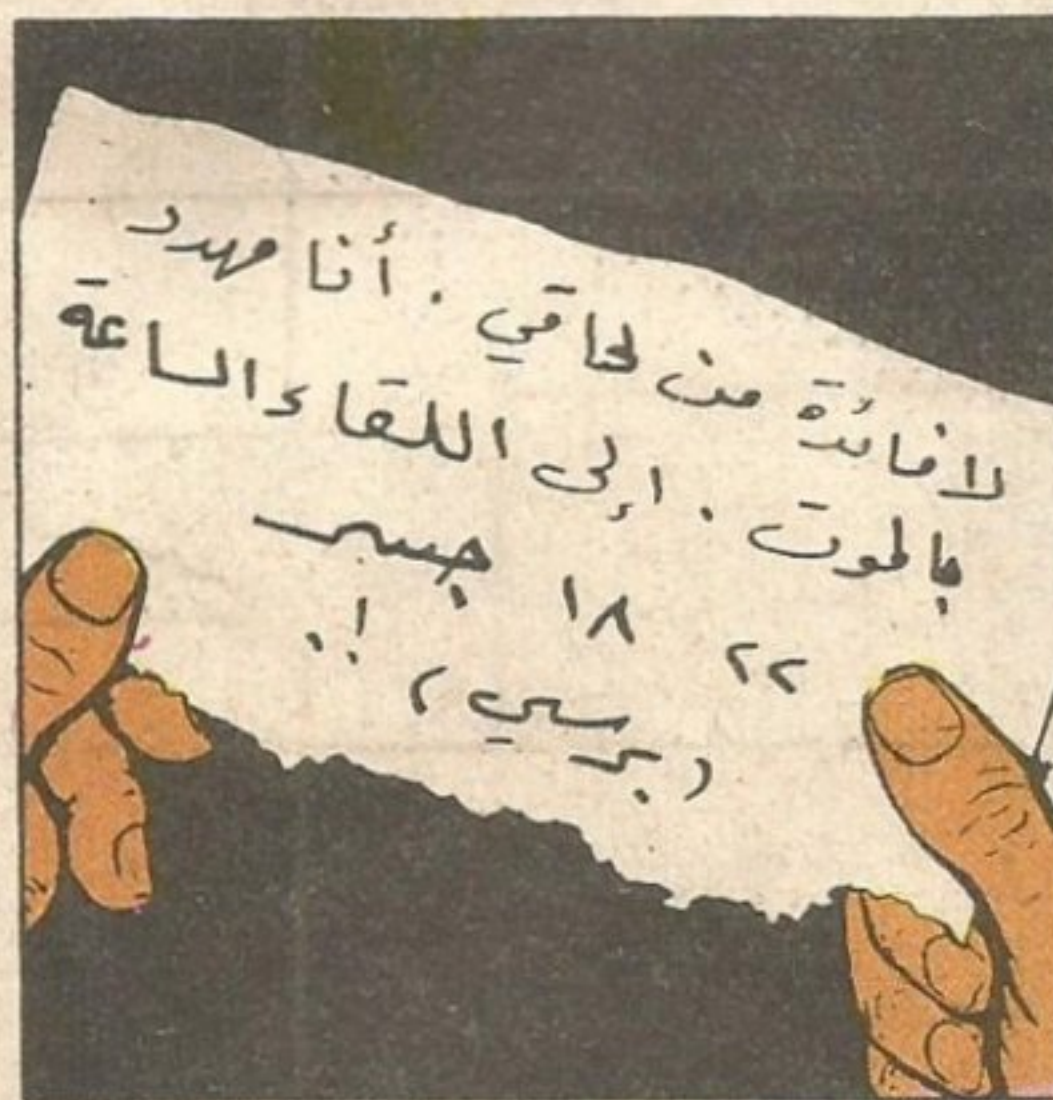 لا فائدة من لحاقي . أنا مهدد
بالموت . إلى اللقاء الساعة
٢٢ ١٨ جسر
( برسي ) !.